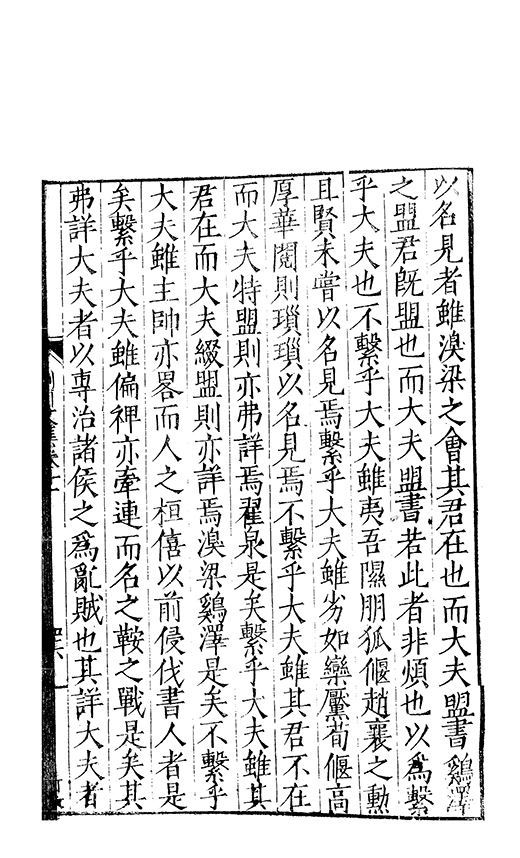 以名見者雖溴梁之會其君在也而大夫盟書鷄澤
之盟君旣盟也而大夫盟書若此者非煩也以爲繫
乎大夫也不繫乎大夫雖夷吾隰朋狐偃趙襄之勲
且賢未嘗以名見焉繫乎大夫雖劣如欒黶荀偃高
厚華閱則瑣瑣以名見焉不繫乎大夫雖其君不在
而大夫特盟則亦弗詳焉翟泉是矣繫乎大夫雖其
君在而大夫綴盟則亦詳焉溴梁鷄澤是矣不繫乎
大夫雖主帥亦畧而人之桓僖以前侵伐書人者是
矣繫乎大夫雖偏裨亦牽連而名之鞍之戰是矣其
弗詳大夫者以専治諸侯之爲亂賊也其詳大夫者